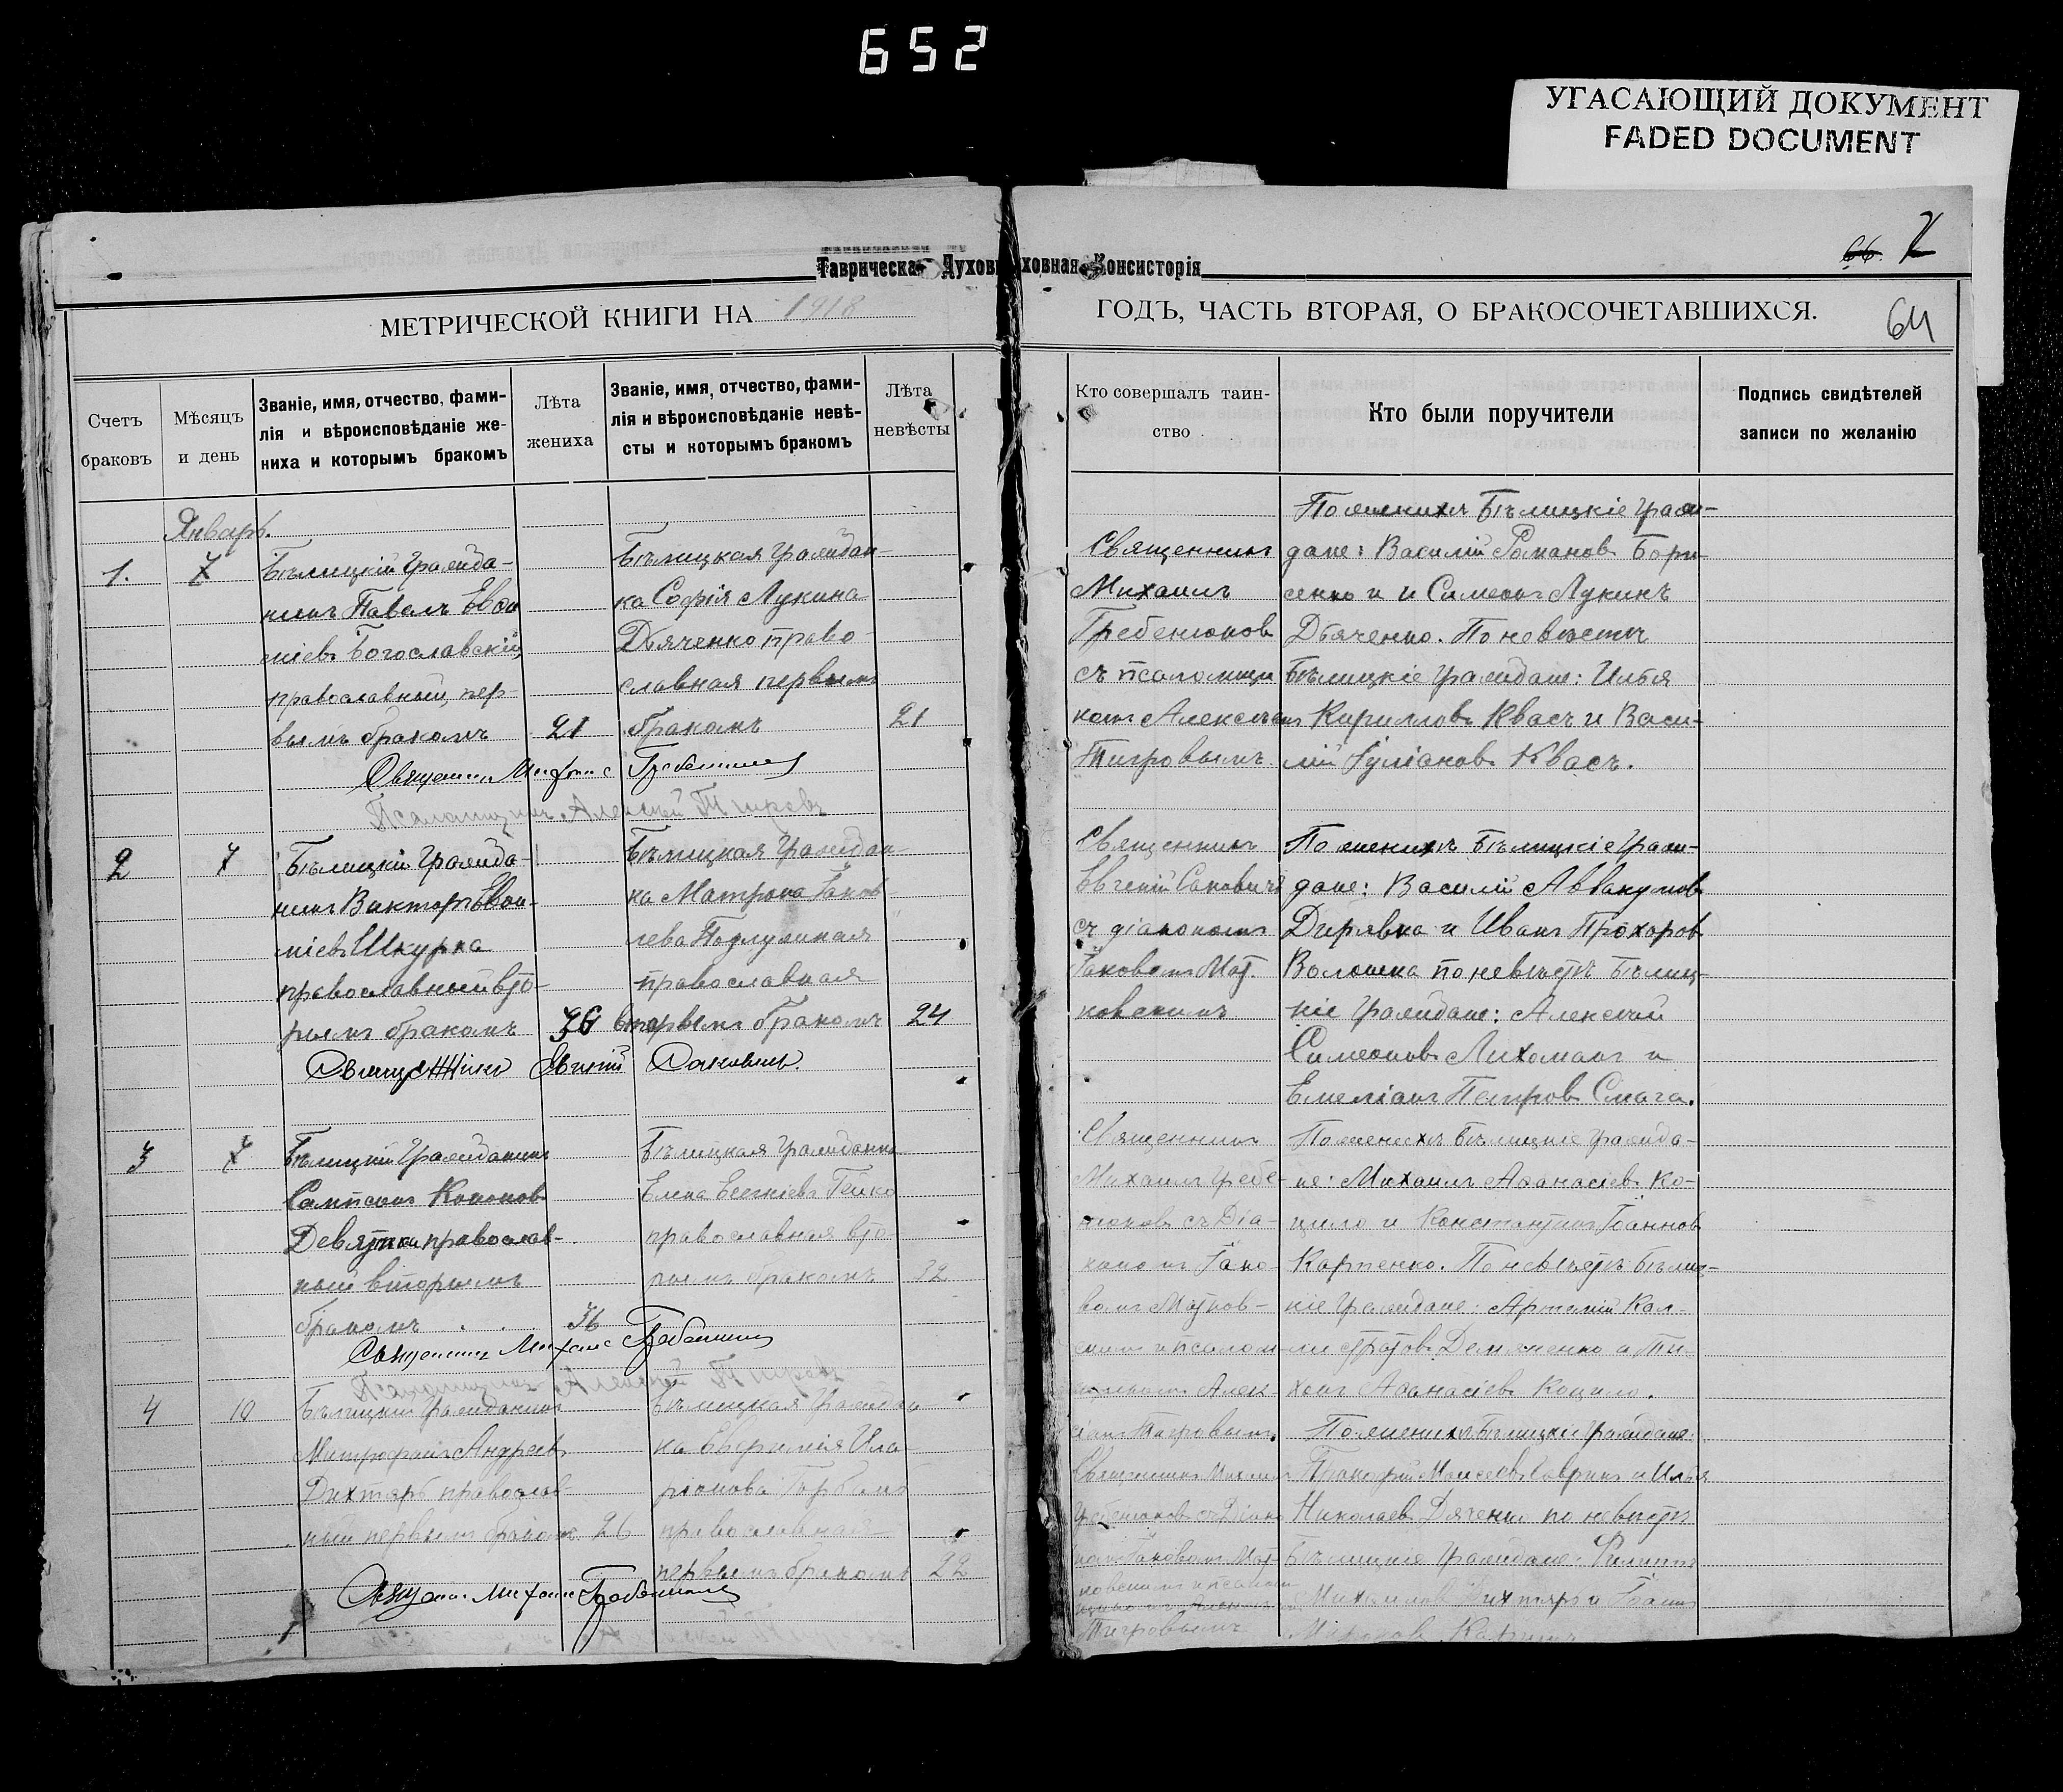 652
УГАСАЮЩИЙ ДОКУМЕНТ
FADED DOCUMENT
66
64
Таврическа Духов ховная Консисторія
МЕТРИЧЕСКОЙ КНИГИ НА 1918
ГОДЪ, ЧАСТЬ ВТОРАЯ, О БРАКОСОЧЕТАВШИХСЯ.
Счетъ
браковъ
Мѣсяцъ
и день
Званіе, имя, отчество, фами-
лія и вѣроисповѣданіе же-
ниха и которымъ бракомъ
Лѣта
жениха
Званіе, имя, отчество, фами-
лія и вѣроисповѣданіе невѣ-
сты и которымъ бракомъ
Лѣта
невѣсты
Кто совершалъ таин-
ство
Кто были поручители
Подпись свидѣтелей
записи по желанію
Январь.
1.
7
Бѣлицкій гражда-
нинъ Павелъ
Богославскій,
православный, пер-
вымъ бракомъ
21
Бѣлицкая граждан-
ка Софія Лукина
Дьяченко право-
славная первымъ
бракомъ
21
Священникъ
Михаилъ
Гребенюковъ
съ псаломщи
комъ Алексѣемъ
Тигровымъ
По женихѣ Бѣлицкіе граж-
дане: Василій Романовъ Бори-
сенко и и Симеонъ Лукинъ
Дьяченко. По невѣстѣ
Бѣлицкіе граждане: Илья
Кирилловъ Квасъ и Васи-
лій Іуліановъ Квасъ.
Священникъ Михаилъ Гребенюковъ
Псаломщикъ Алексѣй Тигровъ
2
7
Бѣлицкій гражда-
нинъ Викторъ
Шкурка
православный вто-
рымъ бракомъ
36
Бѣлицкая граждан-
ка Матрона Іаков-
лева Подлужная
православная
бракомъ
24
Священникъ
Евгеній Саковичъ
съ діакономъ
Іаковомъ Мат-
ковскимъ
По женихѣ Бѣлицкіе граж-
дане: Василій Аввакумовъ
Дирявка и Иванъ Прохоровъ
Волошка по невѣстѣ Бѣлиц-
кіе граждане: Алексѣй
Симеоновъ Лихоманъ и
Емеліанъ Петровъ Смага.
Священникъ Евгеній Саковичъ
3
7
Бѣлицкій гражданинъ
Сампсонъ Кононовъ
Девятка православ-
ный вторымъ
бракомъ
36
Бѣлицкая гражданка
Елена Гейко
православная вто-
рымъ бракомъ
32
Священникъ
Михаилъ Гребе-
нюковъ съ Діа-
кономъ Іако-
вомъ Матков-
скимъ и псалом-
щикомъ Алек-
Тигровымъ.
По женихѣ Бѣлицкіе гражда-
не: Михаилъ Аѳанасіевъ Ко-
цило и Константинъ Іоанновъ
Карпенко. По невѣстѣ Бѣлиц-
кіе граждане: Артемій Кал-
листратовъ Демяненко и Ти-
хонъ Аѳанасіевъ Коцило.
Священникъ Михаилъ Гребенюковъ
Псаломщикъ Алексѣй Тигровъ
4
10
Бѣлицкій гражданинъ
Митрофанъ Андреевъ
Дихтярь православ-
ный первымъ бракомъ
26
Бѣлицкая граждан
ка Евфимія Ила-
ріонова
православная
первымъ бракомъ
22
Священникъ Михаилъ
Гребенюковъ съ Діако-
номъ Іаковомъ Мат-
ковскимъ и псалом
Тигровымъ
По женихѣ Бѣлицкіе граждане
Моисеевъ и Илья
Николаевъ Дяченко по невѣстѣ
Бѣлицкіе граждане: Филиппъ
Михаиловъ Дихтярь и
Священникъ Михаилъ Гребенюковъ